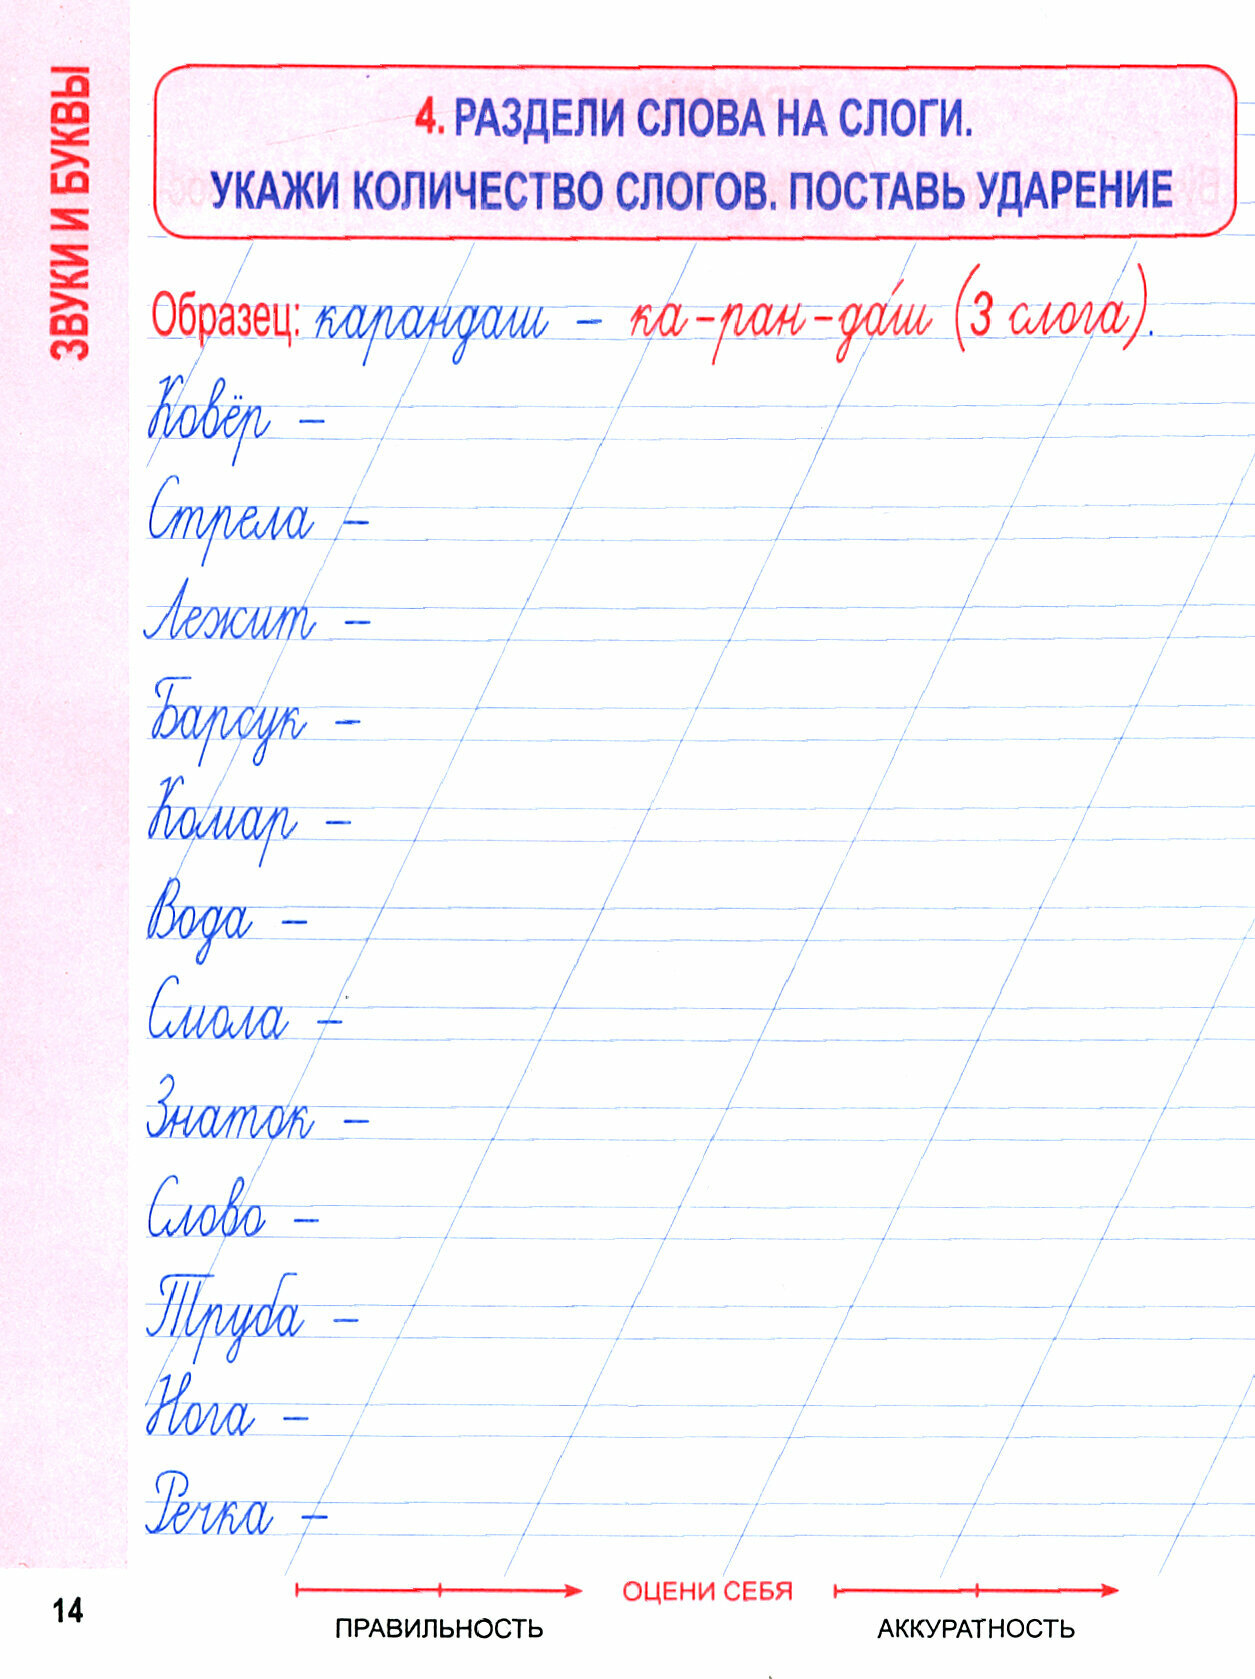 ЗВУКИ И БУКВЫ
4. РАЗДЕЛИ СЛОВА НА СЛОГИ.
УКАЖИ КОЛИЧЕСТВО СЛОГОВ. ПОСТАВЬ УДАРЕНИЕ
Образец: карандаш – ка-ран-да́ш (3 слога).
Ковёр –
Стрела –
Лежит –
Барсук –
Комар –
Вода –
Смола –
Знаток –
Слово –
Труба –
Нога –
Речка –
ОЦЕНИ СЕБЯ
ПРАВИЛЬНОСТЬ АККУРАТНОСТЬ
14